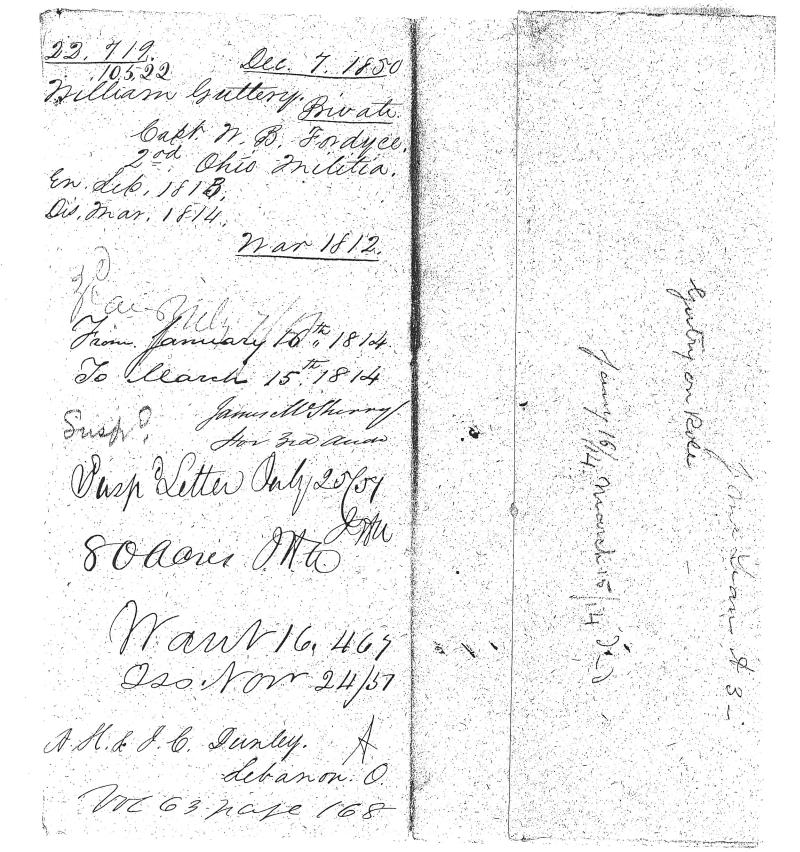 22. 719.
10522
Dec. 7. 1850
William Guttery.
Private
Capt. W. B. Fordyce.
2nd Ohio Militia.
En. Feb, 1813,
Dis. Mar. 1814.
War 1812.
From January 16th, 1814.
To March 15th 1814
James McSherry
for 3rd Audr
Suspd.
Suspd Letter July 25/51
JHW
80 Acres
Want 16. 467
Iss. Nov 24/51
A. H. & J. C. Dunlevy.
A
Lebanon. O.
Vol 63 page 168
Guttry on Role
Jany 16/14 March 15/14